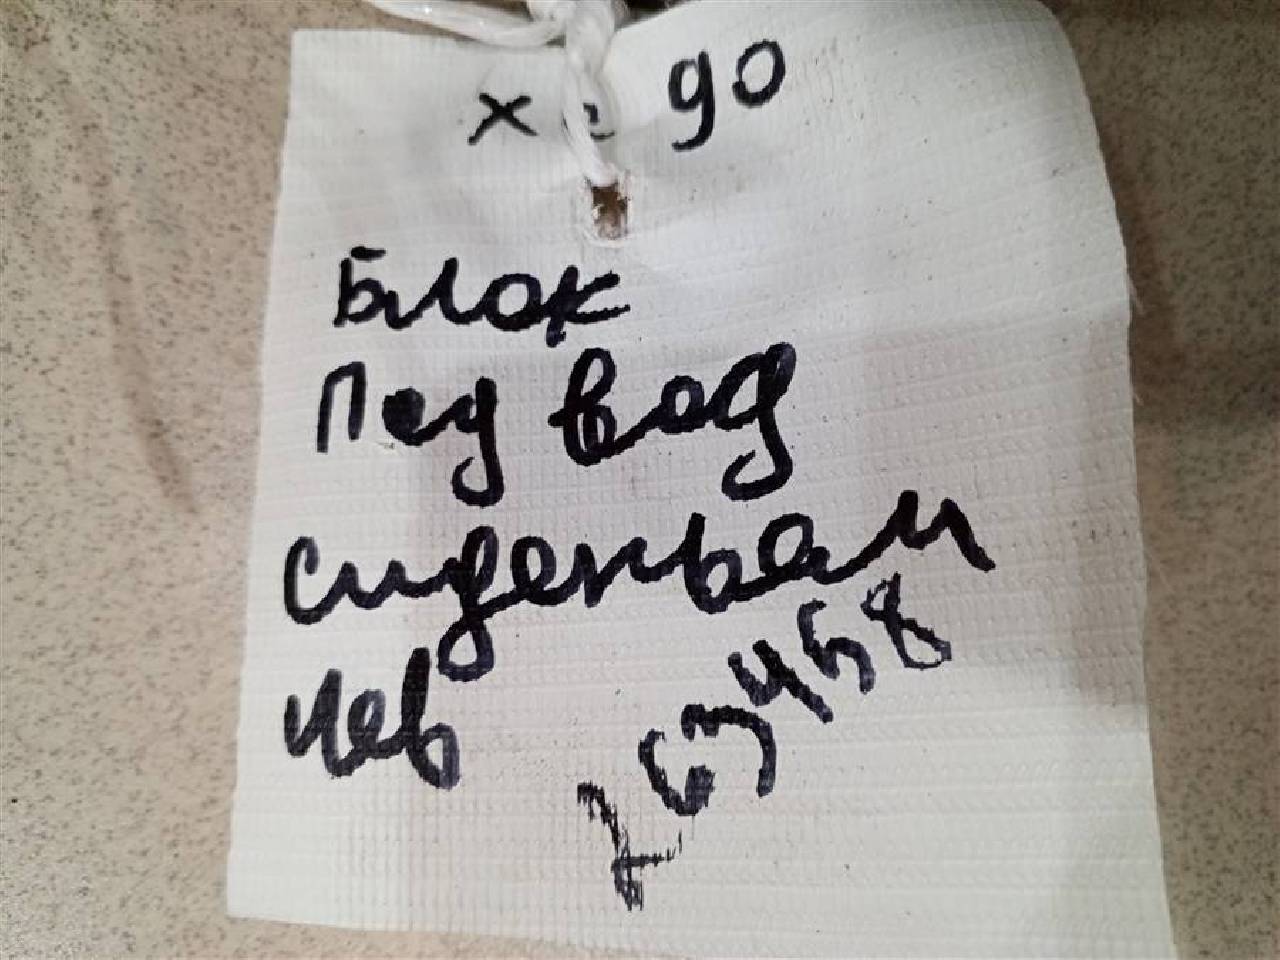 хс 90
Блок
Под вод
сиденьем
лев
763458